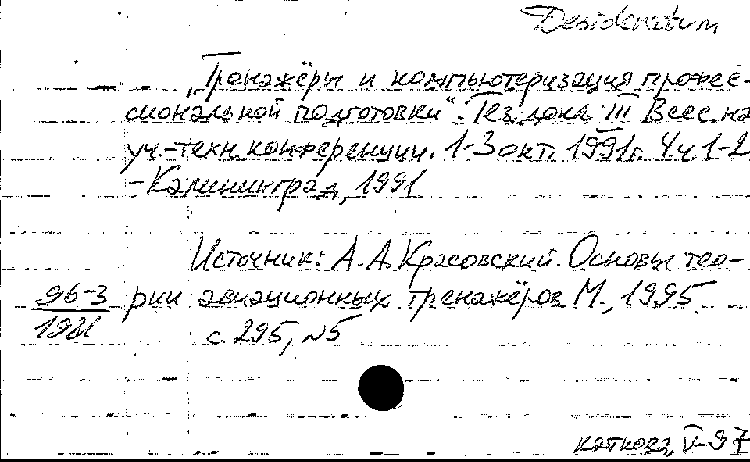 Desideratum
„Тренажёры и компьютеризация профес-
сиональной подготовки". Тез. докл. III Всес. на
уч.-техн. конференции. 1-3 окт. 1991г. Ч.ч 1-2.
-Калининград, 1991
Источник: А.А. Красовский. Основы тео-
96-3 рии авиационных тренажёров М., 1995.
1921 с 295, №5
каткова, V-97